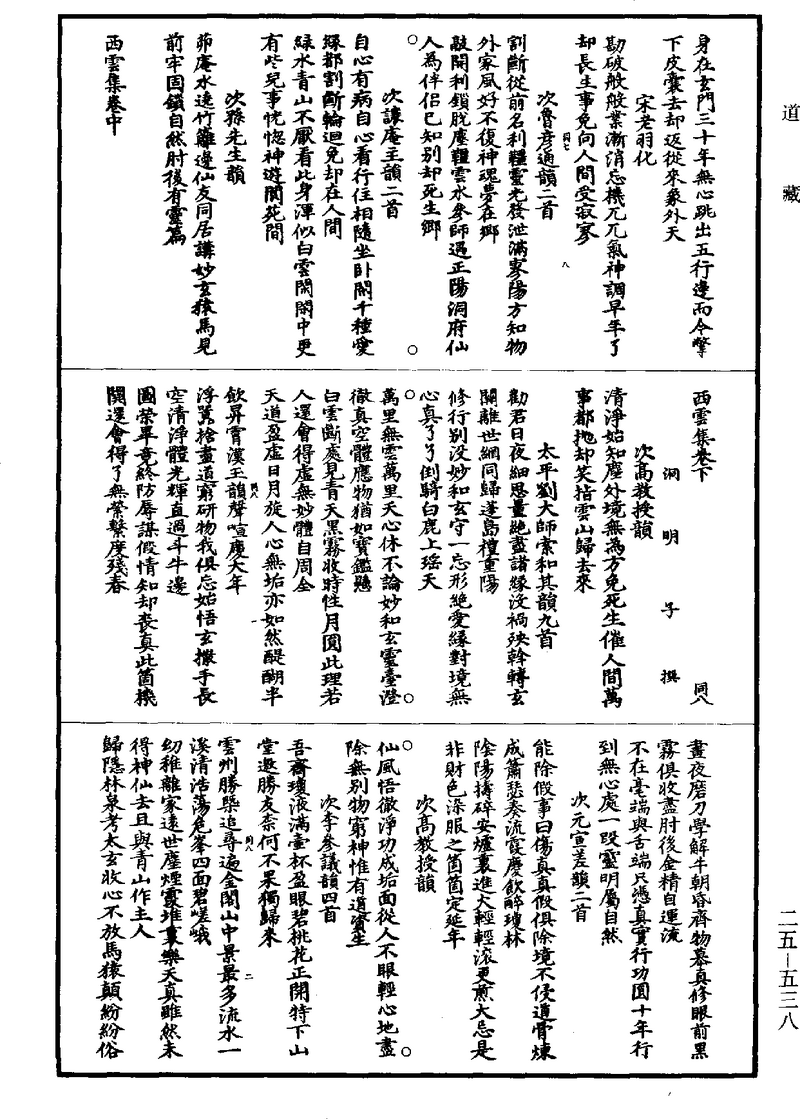 道藏
身在玄門三十年無心跳出五行邊而今撆
下皮囊去却返從來象外天
宋老羽化
勘破般般業漸消忘機兀兀氣神調早年了
却長生事免向人間受寂寥
次魯彥通韻二首
割斷從前名利韁靈光發泄滿寥陽方知物
外家風好不復神魂夢在鄉
敲開利鎖脫塵韁雲水參師遇正陽洞府仙
人為伴侶已知別却死生鄉
次讓庵王韻二首
自心有病自心看行住相隨坐卧閑千種愛
緣都割斷輪迴免却在人間
綠水青山不厭看此身渾似白雲閑閑中更
有些兒事恍惚神遊閬苑間
次孫先生韻
茆庵水遶竹籬邊仙友同居講妙玄猿馬見
前牢固鎖自然肘後有靈篇
西雲集卷中
西雲集卷下
同八
洞明子撰
次高教授韻
清淨始知塵外境無為方免死生催人間萬
事都拋却笑指雲山歸去來
太平劉大師索和其韻九首
勸君日夜細思量絕盡諸緣沒禍殃幹轉玄
關離世網同歸蓬島禮重陽
修行別沒妙和玄守一忘形絕愛緣對境無
心真了了倒騎白鹿上瑤天
萬里無雲萬里天心休不論妙和玄靈臺澄
徹真空體應物猶如寶鑑懸
白雲斷處見青天黑霧收時性月圓此理若
人還會得虛無妙體自周全
天道盈虛日月旋人心無垢亦如然醍醐半
飲昇霄漢玉韻聲喧廣大年
浮蓂捨盡道窮研物我俱忘始悟玄撒手長
空清淨體光輝直過斗牛邊
圖榮畢竟終防辱謀假情知却喪真此箇機
關還會得了無縈繫度殘春
晝夜磨刀學解牛朝昏齊物慕真修眼前黑
霧俱收盡肘後金精自運流
不在毫端與舌端只憑真實行功圓十年行
到無心處一段靈明屬自然
次元宣差韻二首
能除假事曰傷真真假俱除境不侵道骨煉
成簫瑟奏流霞慶飲醉瓊林
陰陽擣碎安爐裏進火輕輕滾更煎大忌是
非財色染服之箇箇定延年
次高教授韻
仙風悟徹淨功成垢面從人不眼輕心地盡
除無別物窮神惟有道資生
次李參議韻四首
吾齋瓊液滿壺杯盈眼碧桃花正開特下山
堂邀勝友柰何不果獨歸來
雲州勝槩追尋遍金閣山中景最多流水一
溪清浩蕩危峯四面碧嵯峨
幼稚離家遠世塵煙霞堆裏樂天真雖然未
得神仙去且與青山作主人
歸隱林泉考太玄收心不放馬猿顛紛紛俗
二五—五三八